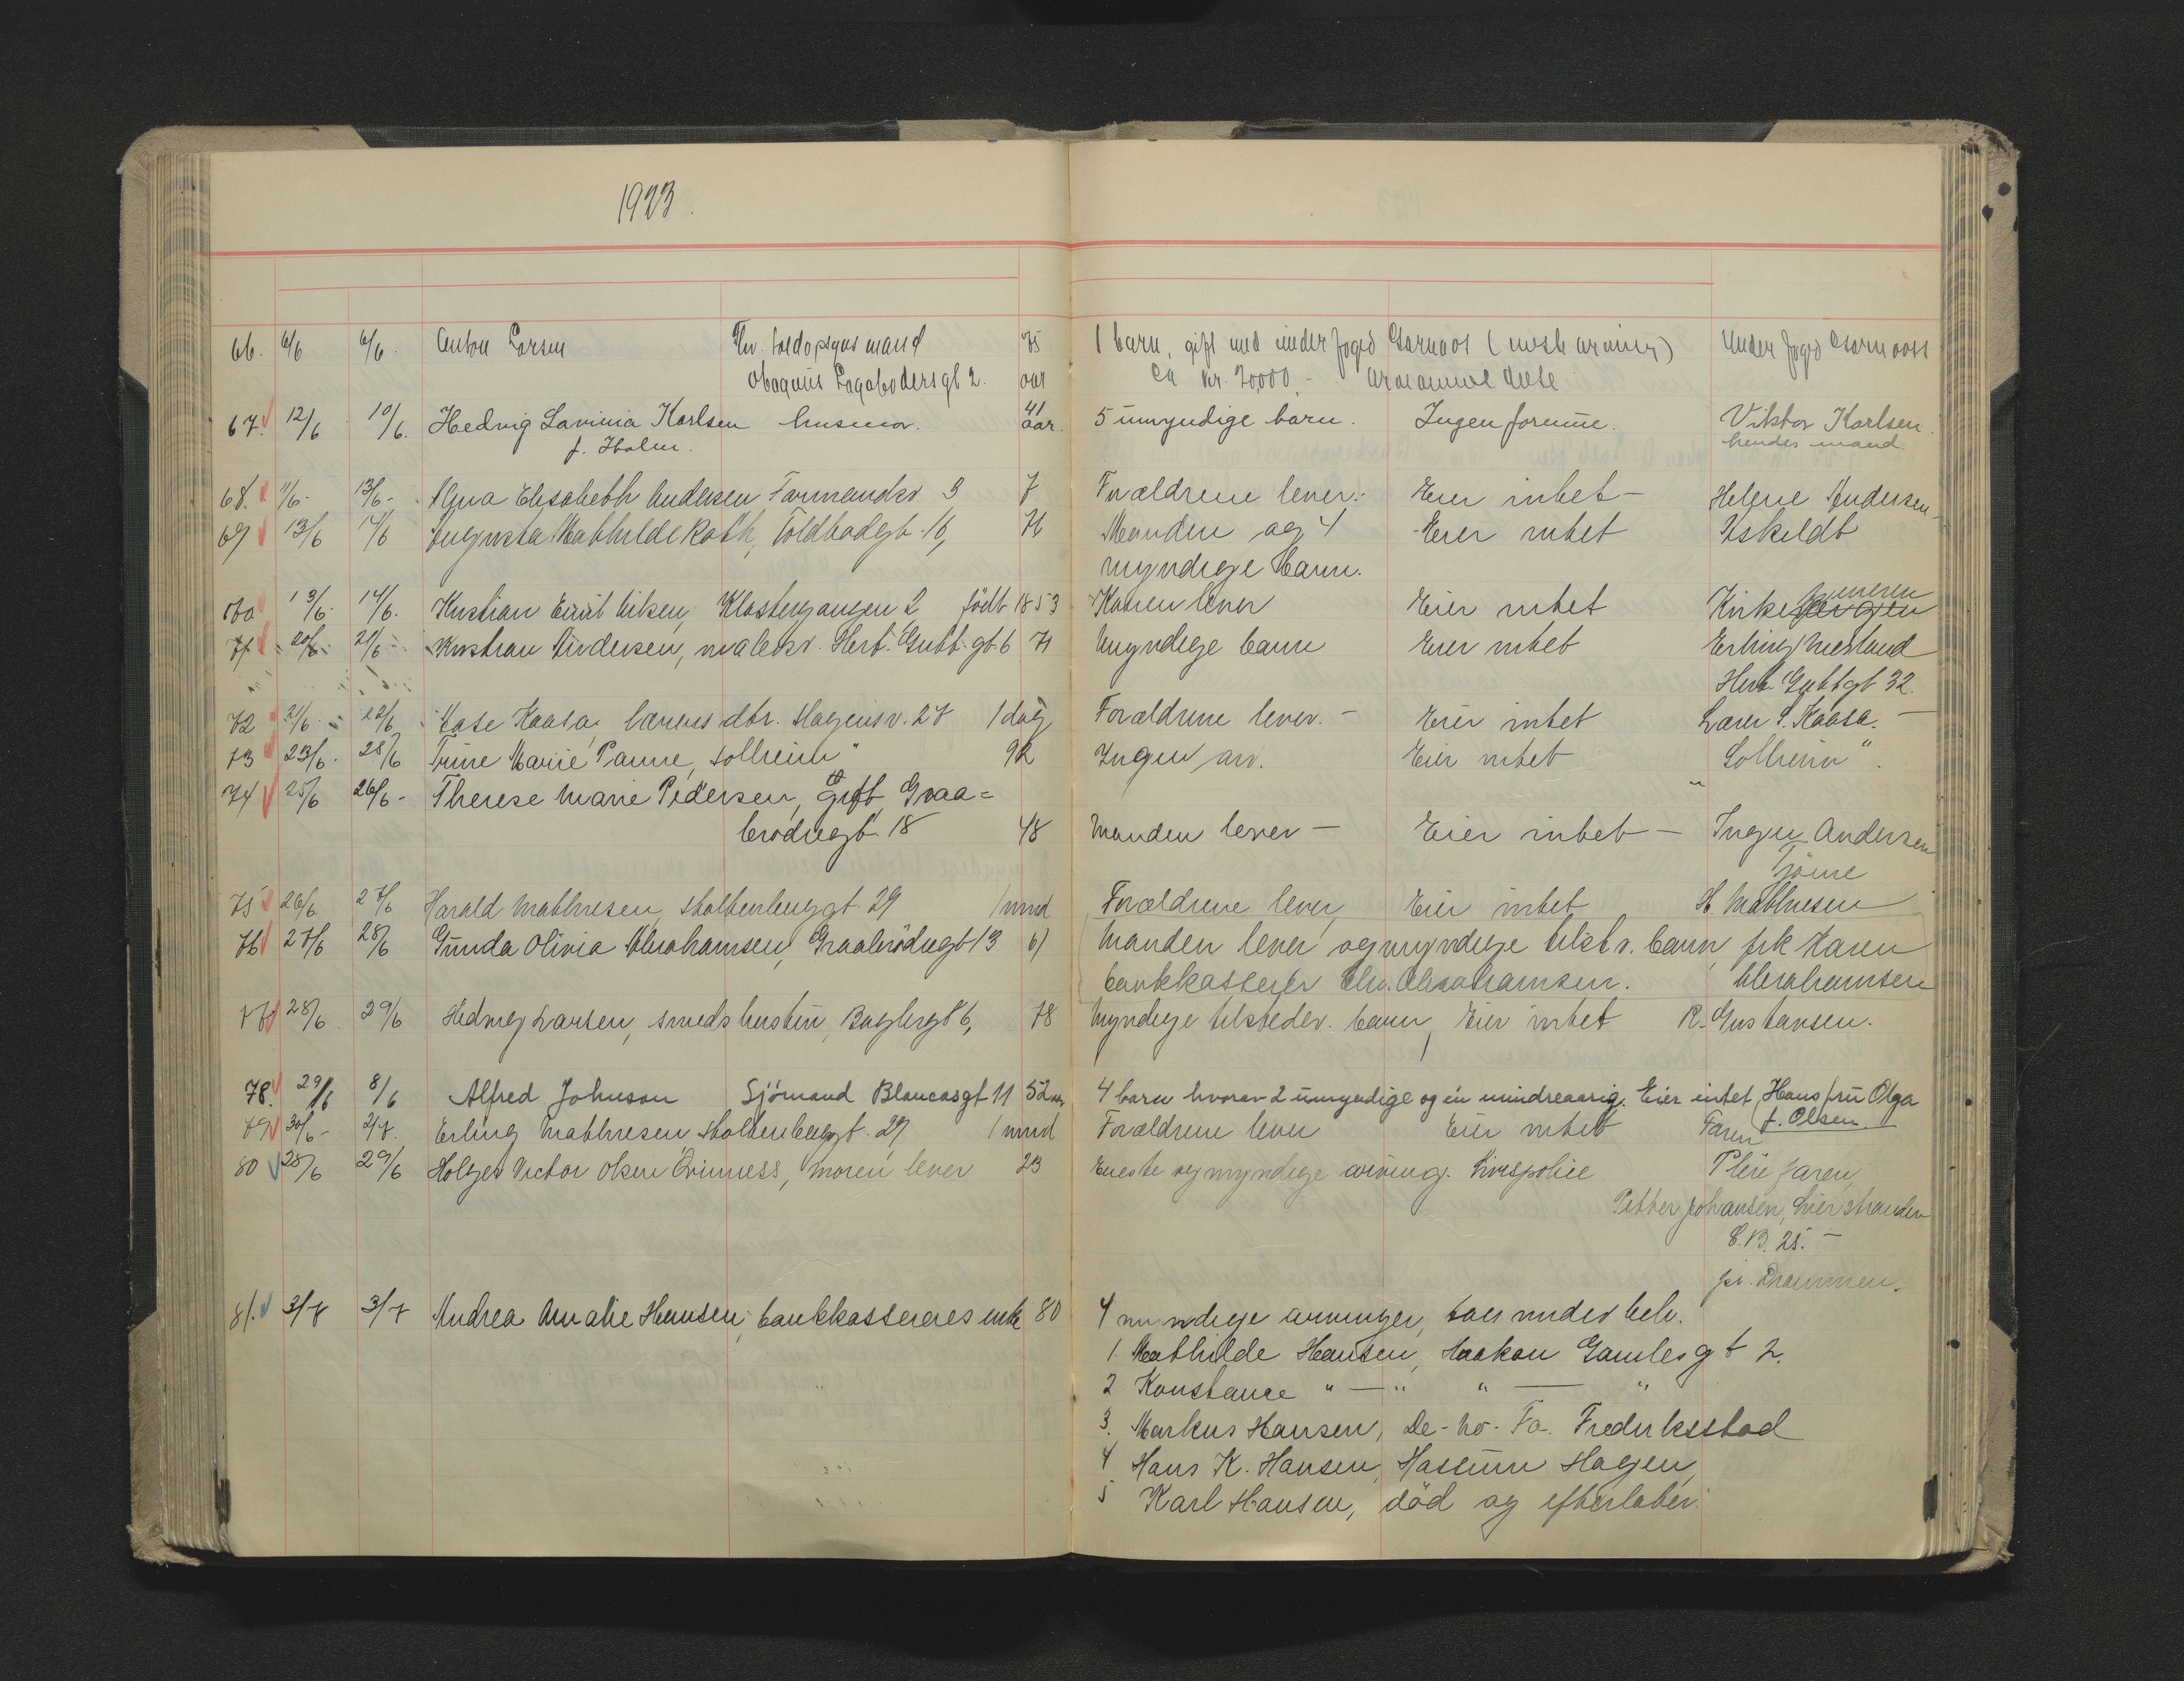 1923.
66. 6/6 6/6. Anton Larsen Fhv. toldopsynsmand 75 1 barn, gift med underfoged (neste arving) Underfoged
2. aar ca kr. 20,000.-
67. 12/6 10/6. Hedvig Lavinia Karlsen husmor. 41 aar. 5 umyndige barn. Ingen formue. Viktor Karlsen.
f. Holm. hendes mand.
68. 11/6- 13/6- Elisabeth Andersen Farmandsv. 3 7 Forældrene lever.- Eier intet- Helene Andersen-
69 13/6 14/6 Augusta Mathilde Roth, Toldbodgt. 16, 76 Manden og 4 Eier intet
myndige barn.
70 13/6- 14/6. Kristian Nilsen, Klostergangen 2 født 1853 Konen lever Eier intet
71 20/6- 21/6- Kristian Andersen, malersv. Hert. Gutt. gt. 6 71 Myndige barn Eier intet Erling
Hert. Guttgt 32.
72 21/6- 22/6 Aase Kaasa, lærers dtr. Hagensv. 27 1 dag Forældrene lever.- Eier intet Lærer S. Kaasa.-
73 23/6. 28/6 Trine Marie Panne, Solheim" 92 Ingen arv. Eier intet "Solheim".
74 25/6 26/6- Therese Marie Pedersen, gift, Graa=
brødregt. 18 48 Manden lever- Eier intet- Inger Andersen
Tjøme
75 26/6 27/6 Harald Mathiesen, Stoltenberggt 29 1 mnd Forældrene lever, Eier intet H. Mathiesen
76 27/6 28/6 Gunda Olivia Abrahamsen, Graabrødregt 13 61 Manden lever og myndige tilstv. barn, frk Karen
bankkasserer Chr. Abrahamsen. Abrahamsen
77 28/6. 29/6 Hedvig Larsen, smeds hustru, Baglergt 6, 78 Myndige tilstedev. barn, Eier intet R. Gustavsen.
78. 29/6 8/6 Alfred Johnson Sjömand Blancasgt 11 52 aar 4 barn hvorav 2 umyndige og én mindreaarig. Eier intet, Hans fru Olga
f. Olsen.
79 30/6- 2/7. Erling Mathiesen Stoltenberggt. 29 1 mnd Forældrene lever Eier intet Faren
80 28/6 29/6 Holger Victor Olsen moren lever 23 Eneste og myndige arving. Livspolice Pleie faren,
Petter Johansen, Lierstranden
E.B. 25.-
pr. Drammen.
81. 3/7 3/7 Andrea Amalie Hansen, bankkassereres enke 80 4 myndige arvinger, under beh.
1. Mathilde Hansen, Haakon Gamlesgt 2.
2. Konstance " — " " — "
3. Markus Hansen, De-No-Fa. Fredriksstad
4 Hans K. Hansen, Hassum Hagen,
5 Karl Hansen, död og efterlater: